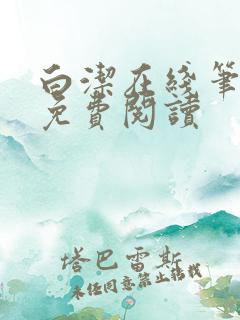 白潔在线筆
免費閱讀
塔巴雷斯
未经同意禁止转载